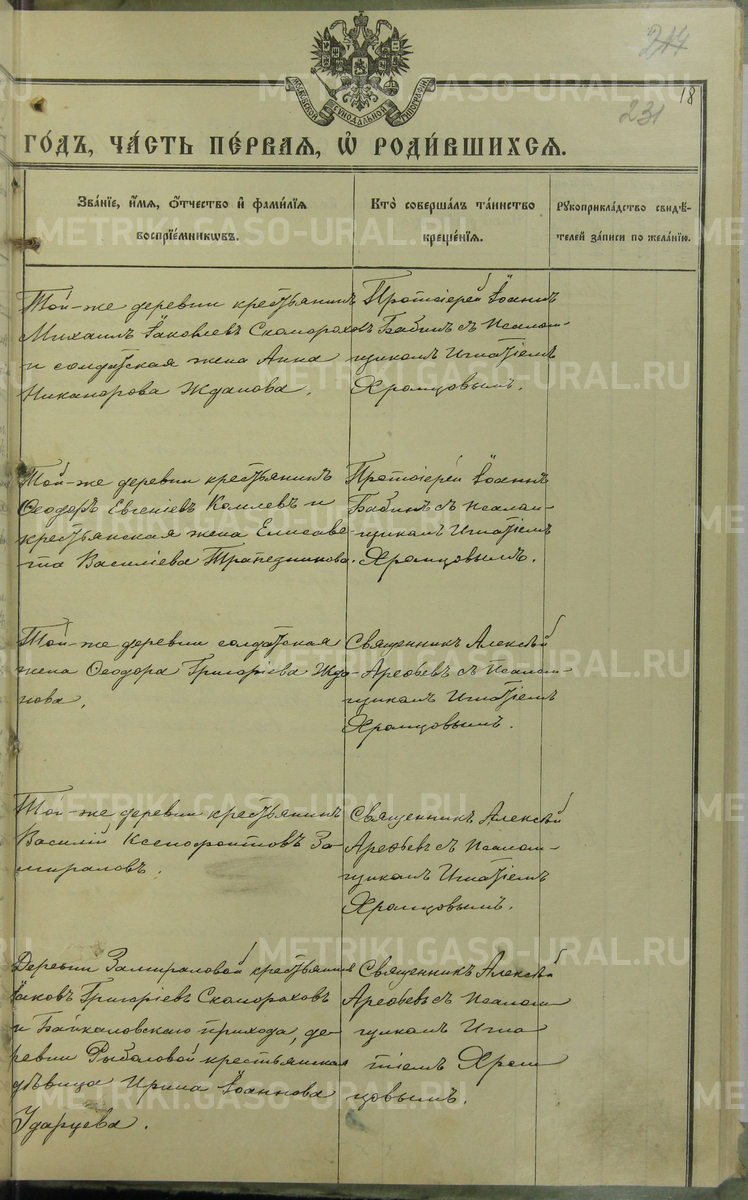 214
18
231
МОСКОВСКОЙ СѴНОДАЛЬНОЙ ТИПОГРАФІИ
ГО́ДЪ, ЧА́СТЬ ПЕ́РВАЯ, Ѡ҆ РОДИ́ВШИХСЯ.
Зва́нїе, и҆́мя, ѻ҆́тчество и҆ фами́лїя
воспрїе́мникѡвъ.
Кто̀ соверша́лъ та́инство
креще́нїя.
Рꙋкоприкла́дство свидѣ́-
телей за́писи по жела́нїю.
Той-же деревни крестьянинъ
Михаилъ Іаковлевъ Скоморохов
и солдатская жена Анна
Никанорова Жданова.
Протоіерей Іоаннъ
Бабинъ съ псалом-
щикомъ Игнатіемъ
Храмцовымъ.
Той-же деревни крестьянинъ
Ѳеодоръ Евгеніевъ Комлевъ и
крестьянская жена Елисаве-
та Василіева Трапезникова.
Протоіерей Іоаннъ
Бабинъ съ псалом-
щикомъ Игнатіемъ
Храмцовымъ.
Той-же деревни солдатская
жена Ѳеодора Григоріева Жда-
нова.
Священникъ Алексѣй
Арефьевъ съ псалом-
щикомъ Игнатіемъ
Храмцовымъ.
Той-же деревни крестьянинъ
Василій Ксенофонтовъ За-
мираловъ.
Священникъ Алексѣй
Арефьевъ съ псалом-
щикомъ Игнатіемъ
Храмцовымъ.
Деревни Замираловой крестьянинъ
Іаковъ Григоріевъ Скомороховъ
и Байкаловскаго прихода, де-
ревни Рыболовой крестьянская
дѣвица Ирина Іоаннова
Ударцева.
Священникъ Алексѣй
Арефьевъ съ псалом-
щикомъ Игна
тіемъ Храм
цовымъ.
METRIKI.GASO-URAL.RU